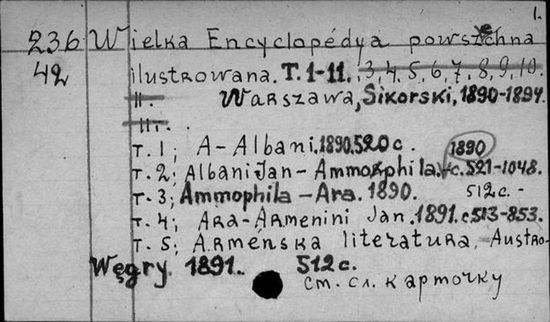 1.
236 Wielka Encyclopédya powszechna
42 ilustrowana. T. 1-11. 3, 4, 5, 6, 7, 8, 9, 10.
11. Warszawa, Sikorski, 1890-1894.
т. 1; A-Albani. 1890. 520 c. 1890
т. 2; Albani Jan-Ammophila. c. 521-1048.
т. 3; Ammophila-Ara. 1890. 512 c. -
т. 4; Ara-Armenini Jan. 1891. c 513-853.
т. 5; Arménska literatura, Austro-
Węgry. 1891.. 512 c.
См. сл. карточку